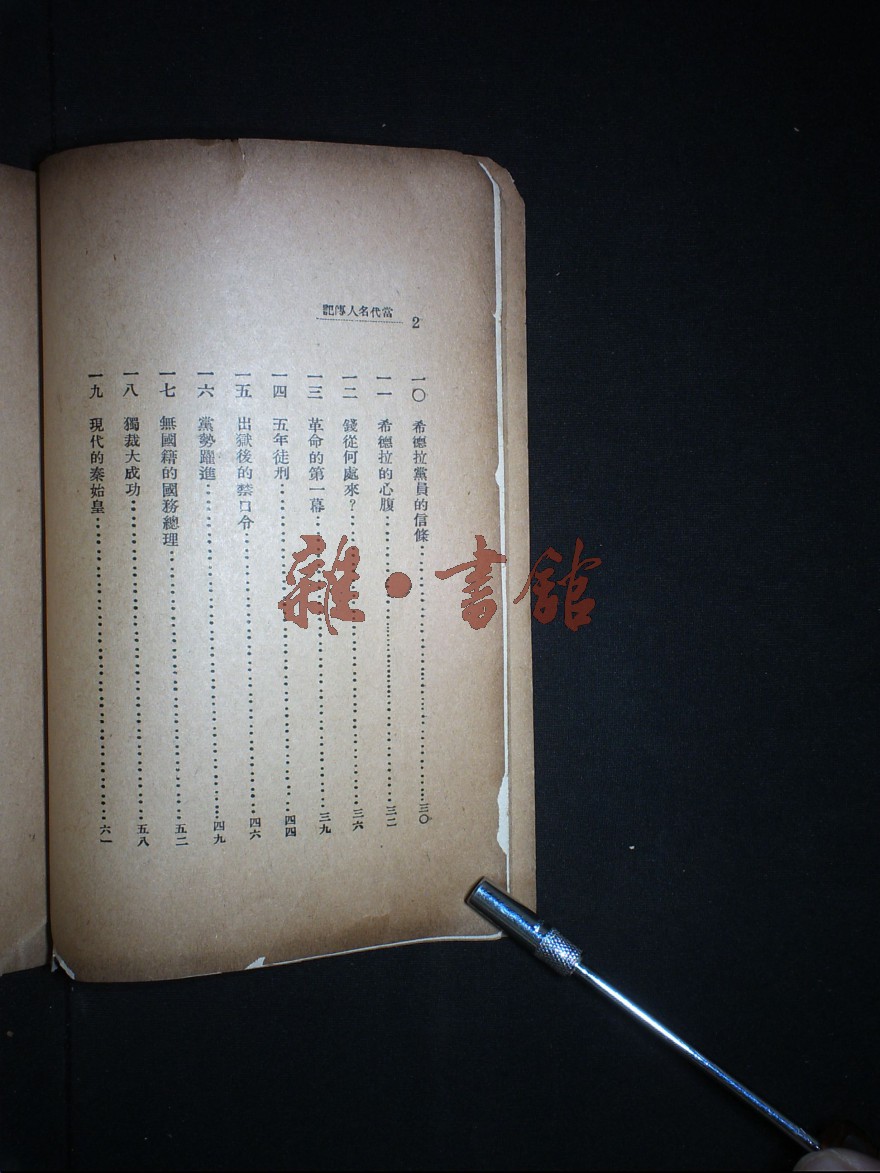 當代名人傳記
2
一〇 希德拉黨員的信條 三〇
一一 希德拉的心腹 三二
一二 錢從何處來？ 三六
一三 革命的第一幕 三九
一四 五年徒刑 四四
一五 出獄後的禁口令 四六
一六 黨勢躍進 四九
一七 無國籍的國務總理 五二
一八 獨裁大成功 五八
一九 現代的秦始皇 六一
雜·書館